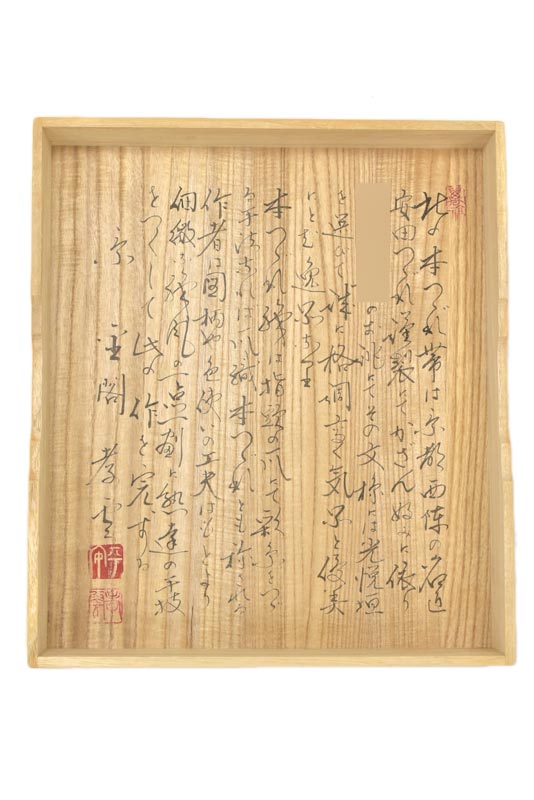 此の本つづれ帯は京都西陣の名匠
安田つづれ謹製にてがざん好みに依り
のお誂にてその文様には光悦垣
を選びて誠に格調高く気品と優美
にとむ逸品なり
本つづれ織は指頭の爪にて彩糸をつづ
る手法なれば爪綴本つづれとも称される
作者は図柄や色使いの工夫はもとより
細微な織風の一点一劃に熟達の手技
をつくして此の作を完する
京